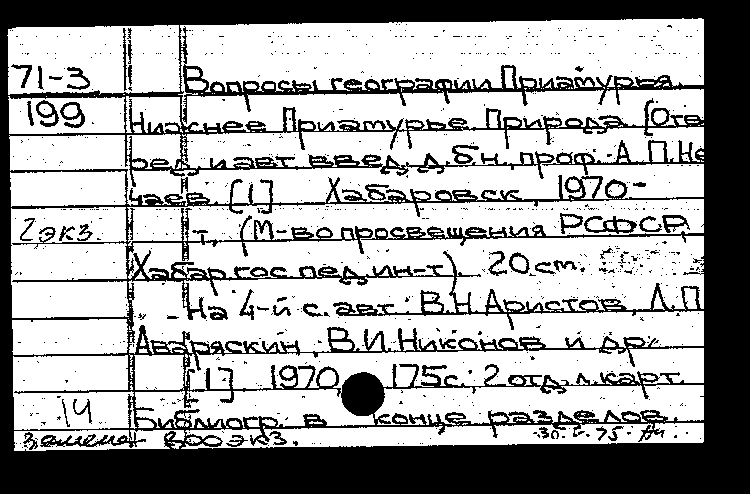 71-3 Вопросы географии Приамурья.
199 Нижнее Приамурье. Природа. [Отв.
ред. и авт. введ. д. б. н., проф. А. П. Не
чаев. [1] Хабаровск, 1970-
2 экз. т. (М-во просвещения РСФСР,
Хабар. гос. пед. ин-т) 20 cm.
На 4-й с. авт.: В.Н. Аристов, Л.П.
Аваряскин, В.И. Никонов и др.
[1] 1970 175 с.; 2 отд. л. карт.
14 Библиогр. в конце разделов.
800 экз. 30.